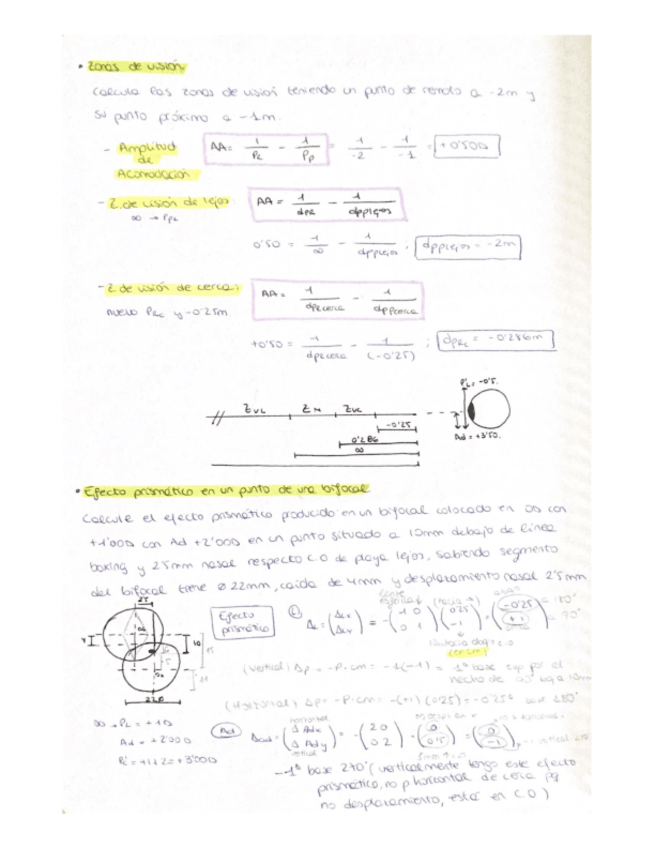 • Zonas de visión
Calcula las zonas de visión teniendo un punto de remoto a -2m y
su punto próximo a -1m.
- Amplitud de Acomodación AA = 1/PR - 1/Pp = 1/-2 - 1/-1 = +0'50D
- Z. de visión de lejos: AA = 1/dPR - 1/dppLejos
∞ → PPL
0'50 = 1/∞ - 1/dppLejos ; dppLejos = -2m
- Z de visión de cerca: AA = 1/dPRcerca - 1/dPPcerca
nuevo PRc y -0'25m
+0'50 = 1/dPRcerca - 1/(-0'25) ; dPRc = -0'286m
PL = -0'5.
ZVL ZN ZVC
-0'25
0'286
∞
Ad = +3'50.
• Efecto prismático en un punto de una bifocal
Calcule el efecto prismático producido en un bifocal colocado en OD con
+1'00D con Ad +2'00D en un punto situado a 10mm debajo de línea
boxing y 2'5mm nasal respecto C.O de playa lejos, sabiendo segmento
del bifocal tiene ø 22mm, caída de 4mm y desplazamiento nasal 2'5mm
Efecto prismático
(L) ΔL = (ΔLx ΔLy) = -(1 0 0 1) (0'25 -1) = (-0'25 +1) 180°
(Vertical) Δp = -P·cm = -1(-1) = 1Δ base sup por el
hecho de
(Horizontal) Δp = -P·cm = -(+1)(0'25) = -0'25Δ 180°
∞ → PL = +1D
Ad = +2'00D
Pc = +1+2 = +3'00D
Ad
horizontal
Δad = (ΔAdx ΔAdy) = -(2 0 0 2) · (0 0'5) = (0 -1)
vertical
-1Δ base 270° (verticalmente tengo este efecto
prismático, no p horizontal de cerca pq
no desplazamiento, estar en C.O)